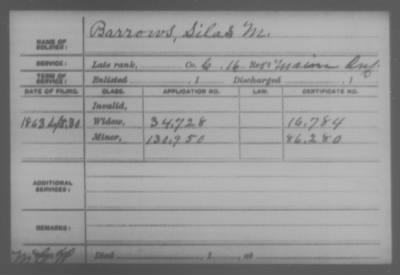 NAME OF SOLDIER: Barrows, Silas M.
SERVICE: Late rank, Co. G. 16 Reg't Maine Inf.
TERM OF SERVICE: Enlisted , 1 Discharged , 1
DATE OF FILING. CLASS. APPLICATION NO. LAW. CERTIFICATE NO.
Invalid,
1863 Widow, 34,728 16,784
Minor, 130,950 86,280
ADDITIONAL SERVICES:
REMARKS:
Died , 1 , at